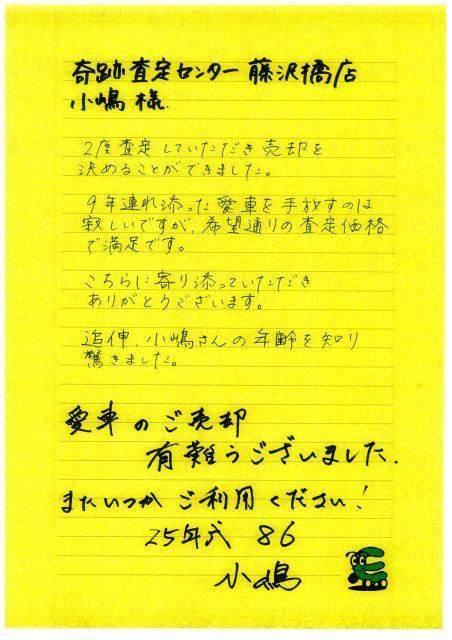 奇跡査定センター 藤沢橘店
小嶋 様
2度査定していただき 売却を
決めることができました。
9年連れ添った愛車を手放すのは
寂しいですが、希望通りの査定価格
で満足です。
こちらに寄り添っていただき
ありがとうございます。
追伸、小嶋さんの年齢を知り
驚きました。
愛車のご売却
有難うございました.
またいつか ご利用ください!
25年式 86
小嶋